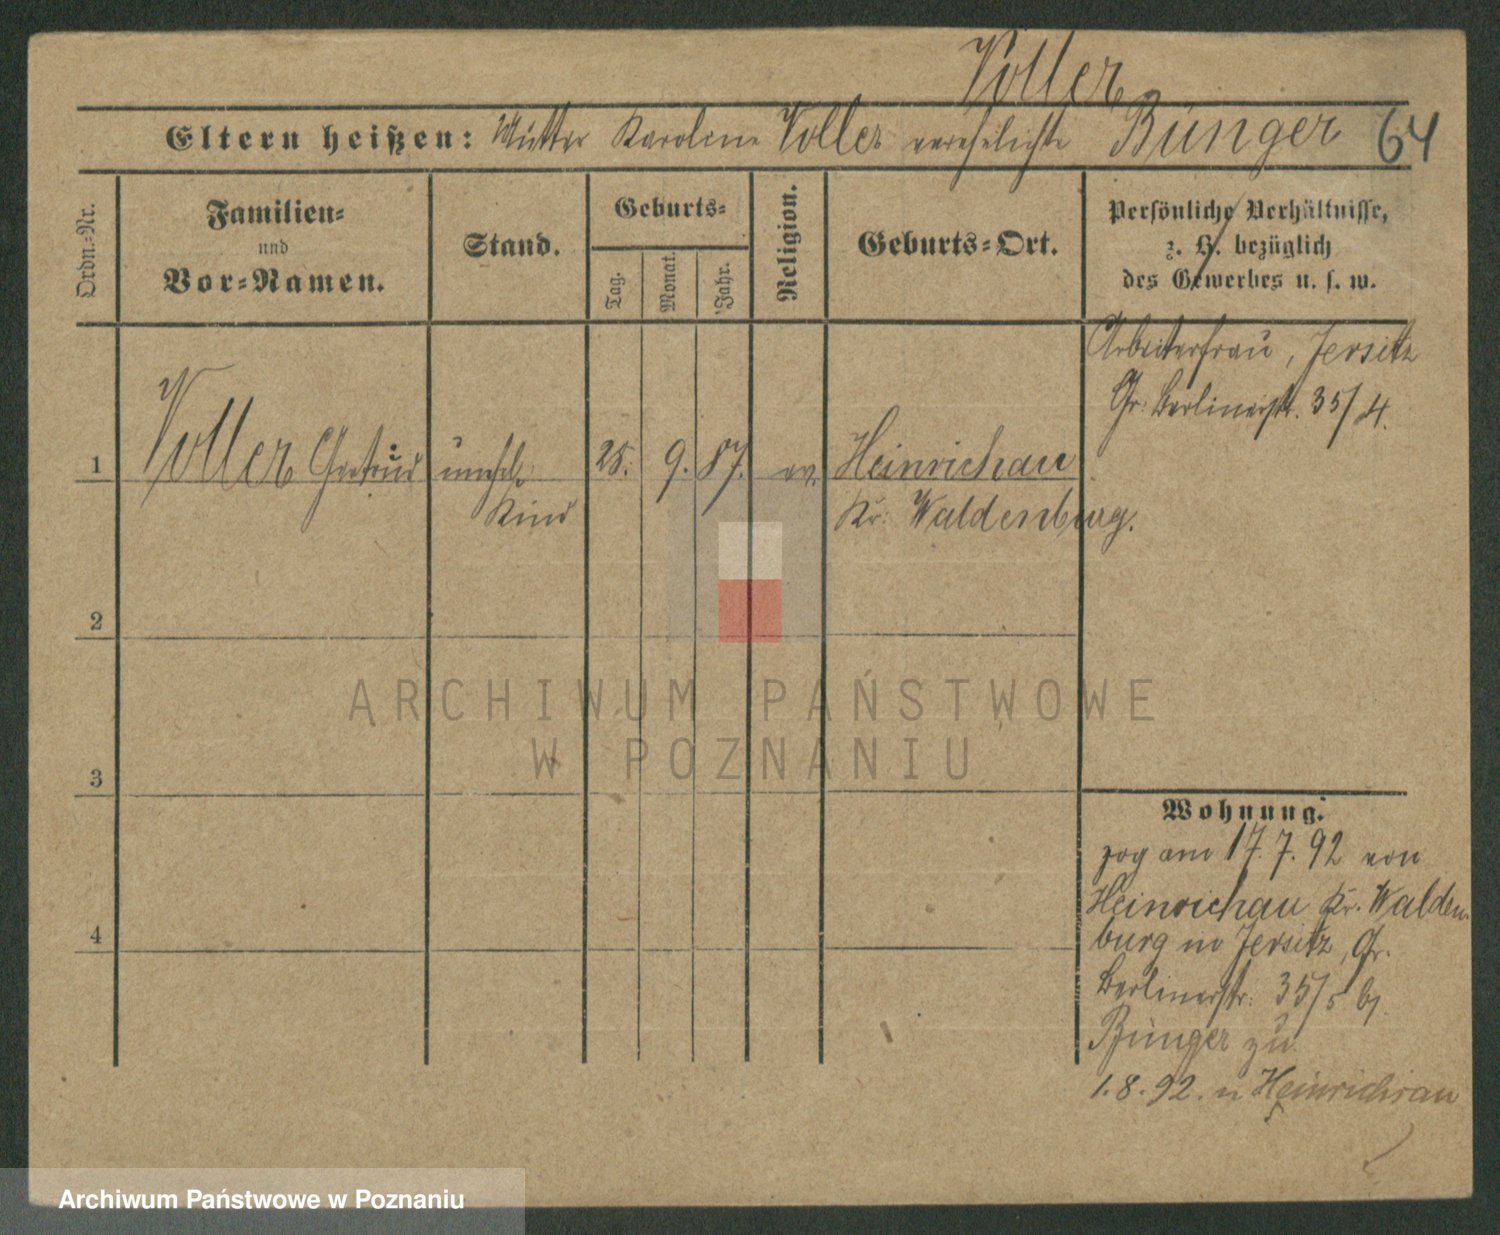 Voller
Eltern heißen: Mutter Karoline Voller verehelichte Bünger 64
Ordn.-Nr.
Familien-
und
Vor-Namen.
Stand.
Geburts-
Tag.
Monat.
Jahr.
Religion.
Geburts-Ort.
Persönliche Verhältnisse,
z. B. bezüglich
des Gewerbes u. s. w.
Arbeiterfrau, Jersitz
Gr: Berlinerstr. 35/4.
1 Voller Gertrud unehel. 28. 9. 87. ev. Heinrichau
Kind Kr: Waldenburg.
2
3
4
Wohnung.
zog am 17.7.92 von
Heinrichau Kr. Walden-
burg n Jersitz, Gr.
Berlinerstr: 35/5 b/
Bünger zu
1.8.92. n Heinrichau
ARCHIWUM PAŃSTWOWE
W POZNANIU
Archiwum Państwowe w Poznaniu